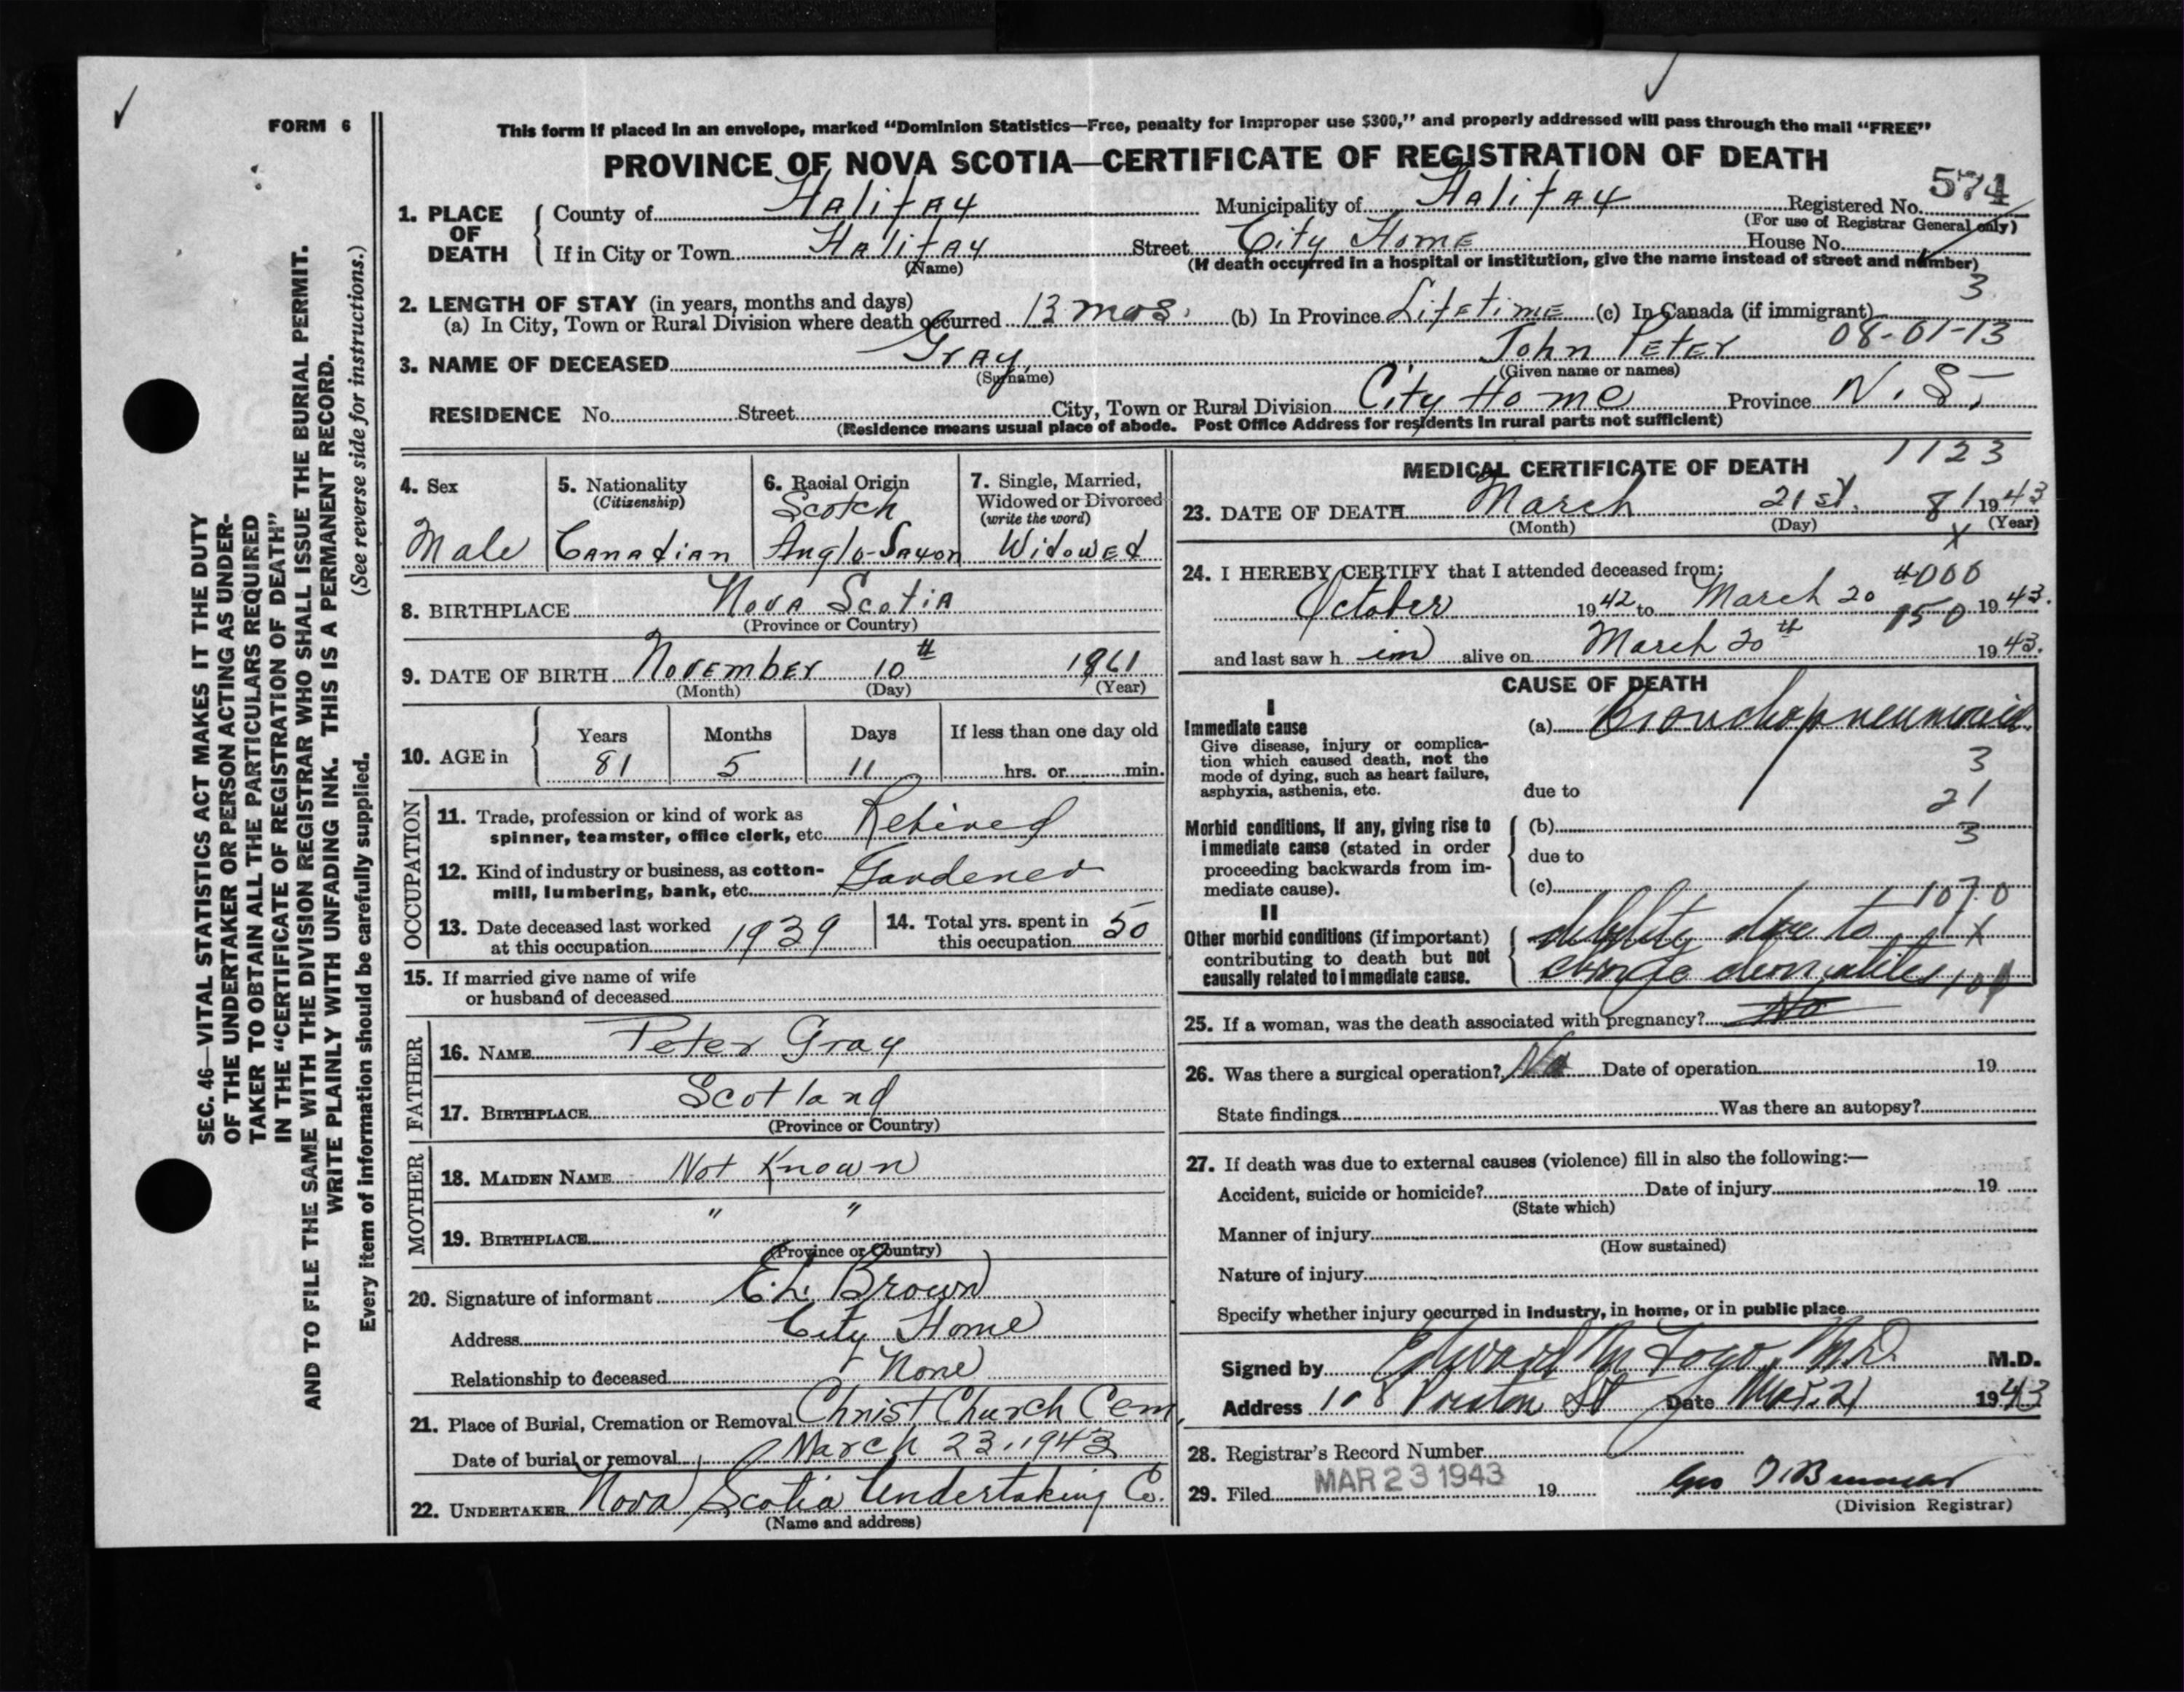 FORM 6
This form if placed in an envelope, marked “Dominion Statistics—Free, penalty for improper use $300,” and properly addressed will pass through the mail “FREE”
PROVINCE OF NOVA SCOTIA—CERTIFICATE OF REGISTRATION OF DEATH
574
1. PLACE OF DEATH
County of Halifax Municipality of Halifax Registered No.
(For use of Registrar General only)
If in City or Town Halifax Street City Home House No.
(Name) (If death occurred in a hospital or institution, give the name instead of street and number)
3
2. LENGTH OF STAY (in years, months and days)
(a) In City, Town or Rural Division where death occurred 13 mos. (b) In Province Lifetime (c) In Canada (if immigrant)
08-01-13
3. NAME OF DECEASED Gray, John Peter
(Surname) (Given name or names)
RESIDENCE No. Street City, Town or Rural Division City Home Province N.S.
(Residence means usual place of abode. Post Office Address for residents in rural parts not sufficient)
4. Sex
Male
5. Nationality
(Citizenship)
Canadian
6. Racial Origin
Scotch
Anglo-Saxon
7. Single, Married,
Widowed or Divorced
(write the word)
Widowed
8. BIRTHPLACE Nova Scotia
(Province or Country)
9. DATE OF BIRTH November 10th 1861
(Month) (Day) (Year)
10. AGE in
Years Months Days If less than one day old
81 5 11 hrs. or min.
OCCUPATION
11. Trade, profession or kind of work as
spinner, teamster, office clerk, etc. Retired
12. Kind of industry or business, as cotton-
mill, lumbering, bank, etc. Gardener
13. Date deceased last worked
at this occupation 1939
14. Total yrs. spent in
this occupation 50
15. If married give name of wife
or husband of deceased
FATHER
16. NAME Peter Gray
17. BIRTHPLACE Scotland
(Province or Country)
MOTHER
18. MAIDEN NAME Not Known
19. BIRTHPLACE " "
(Province or Country)
20. Signature of informant E. L. Brown
Address City Home
Relationship to deceased None
21. Place of Burial, Cremation or Removal Christ Church Cem,
Date of burial or removal March 23, 1943
22. UNDERTAKER Nova Scotia Undertaking Co.
(Name and address)
1123
MEDICAL CERTIFICATE OF DEATH
23. DATE OF DEATH March 21st. 81 1943
(Month) (Day) (Year)
X
24. I HEREBY CERTIFY that I attended deceased from:
000
October 1942 to March 20th 150 1943.
and last saw him alive on March 20th 1943.
CAUSE OF DEATH
I
Immediate cause
Give disease, injury or complica-
tion which caused death, not the
mode of dying, such as heart failure,
asphyxia, asthenia, etc.
(a) Bronchopneumonia
3
due to
21
Morbid conditions, if any, giving rise to
immediate cause (stated in order
proceeding backwards from im-
mediate cause).
(b)
3
due to
(c)
107.0
II
Other morbid conditions (if important)
contributing to death but not
causally related to immediate cause.
debility due to
X
25. If a woman, was the death associated with pregnancy? No
26. Was there a surgical operation? No Date of operation 19
State findings Was there an autopsy?
27. If death was due to external causes (violence) fill in also the following:—
Accident, suicide or homicide? Date of injury 19
(State which)
Manner of injury
(How sustained)
Nature of injury
Specify whether injury occurred in industry, in home, or in public place
Signed by Edward M Fogo, M.D. M.D.
Address 108 St Date Mar. 21 1943
28. Registrar's Record Number
29. Filed MAR 23 1943 19
(Division Registrar)
SEC. 46—VITAL STATISTICS ACT MAKES IT THE DUTY
OF THE UNDERTAKER OR PERSON ACTING AS UNDER-
TAKER TO OBTAIN ALL THE PARTICULARS REQUIRED
IN THE “CERTIFICATE OF REGISTRATION OF DEATH”
AND TO FILE THE SAME WITH THE DIVISION REGISTRAR WHO SHALL ISSUE THE BURIAL PERMIT.
WRITE PLAINLY WITH UNFADING INK. THIS IS A PERMANENT RECORD.
Every item of information should be carefully supplied. (See reverse side for instructions.)